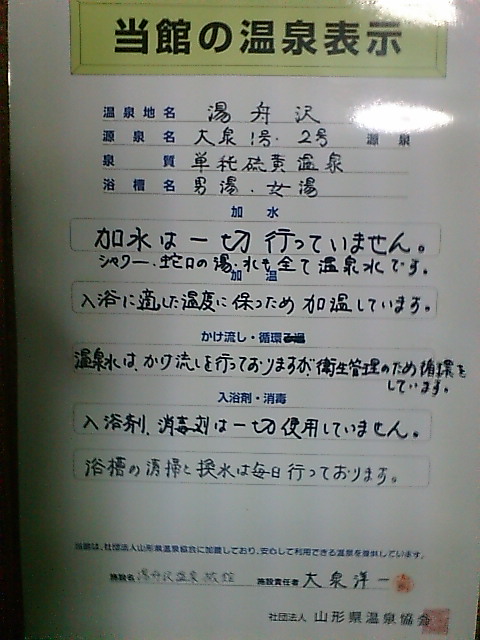 当館の温泉表示
温泉地名 湯舟沢
源泉名 大泉1号・2号 源泉
泉質 単純硫黄温泉
浴槽名 男湯・女湯
加水
加水は一切行っていません。
シャワー・蛇口の湯・水も全て温泉水です。
加温
入浴に適した温度に保つため加温しています。
かけ流し・循環
温泉水は、かけ流しを行っておりますが衛生管理のため循環を
しています。
入浴剤・消毒
入浴剤、消毒剤は一切使用していません。
浴槽の清掃と換水は毎日行っております。
当館は、社団法人山形県温泉協会に加盟しており、安心して利用できる温泉を提供しています。
施設名 湯舟沢温泉旅館 施設責任者 大泉洋一
社団法人 山形県温泉協会